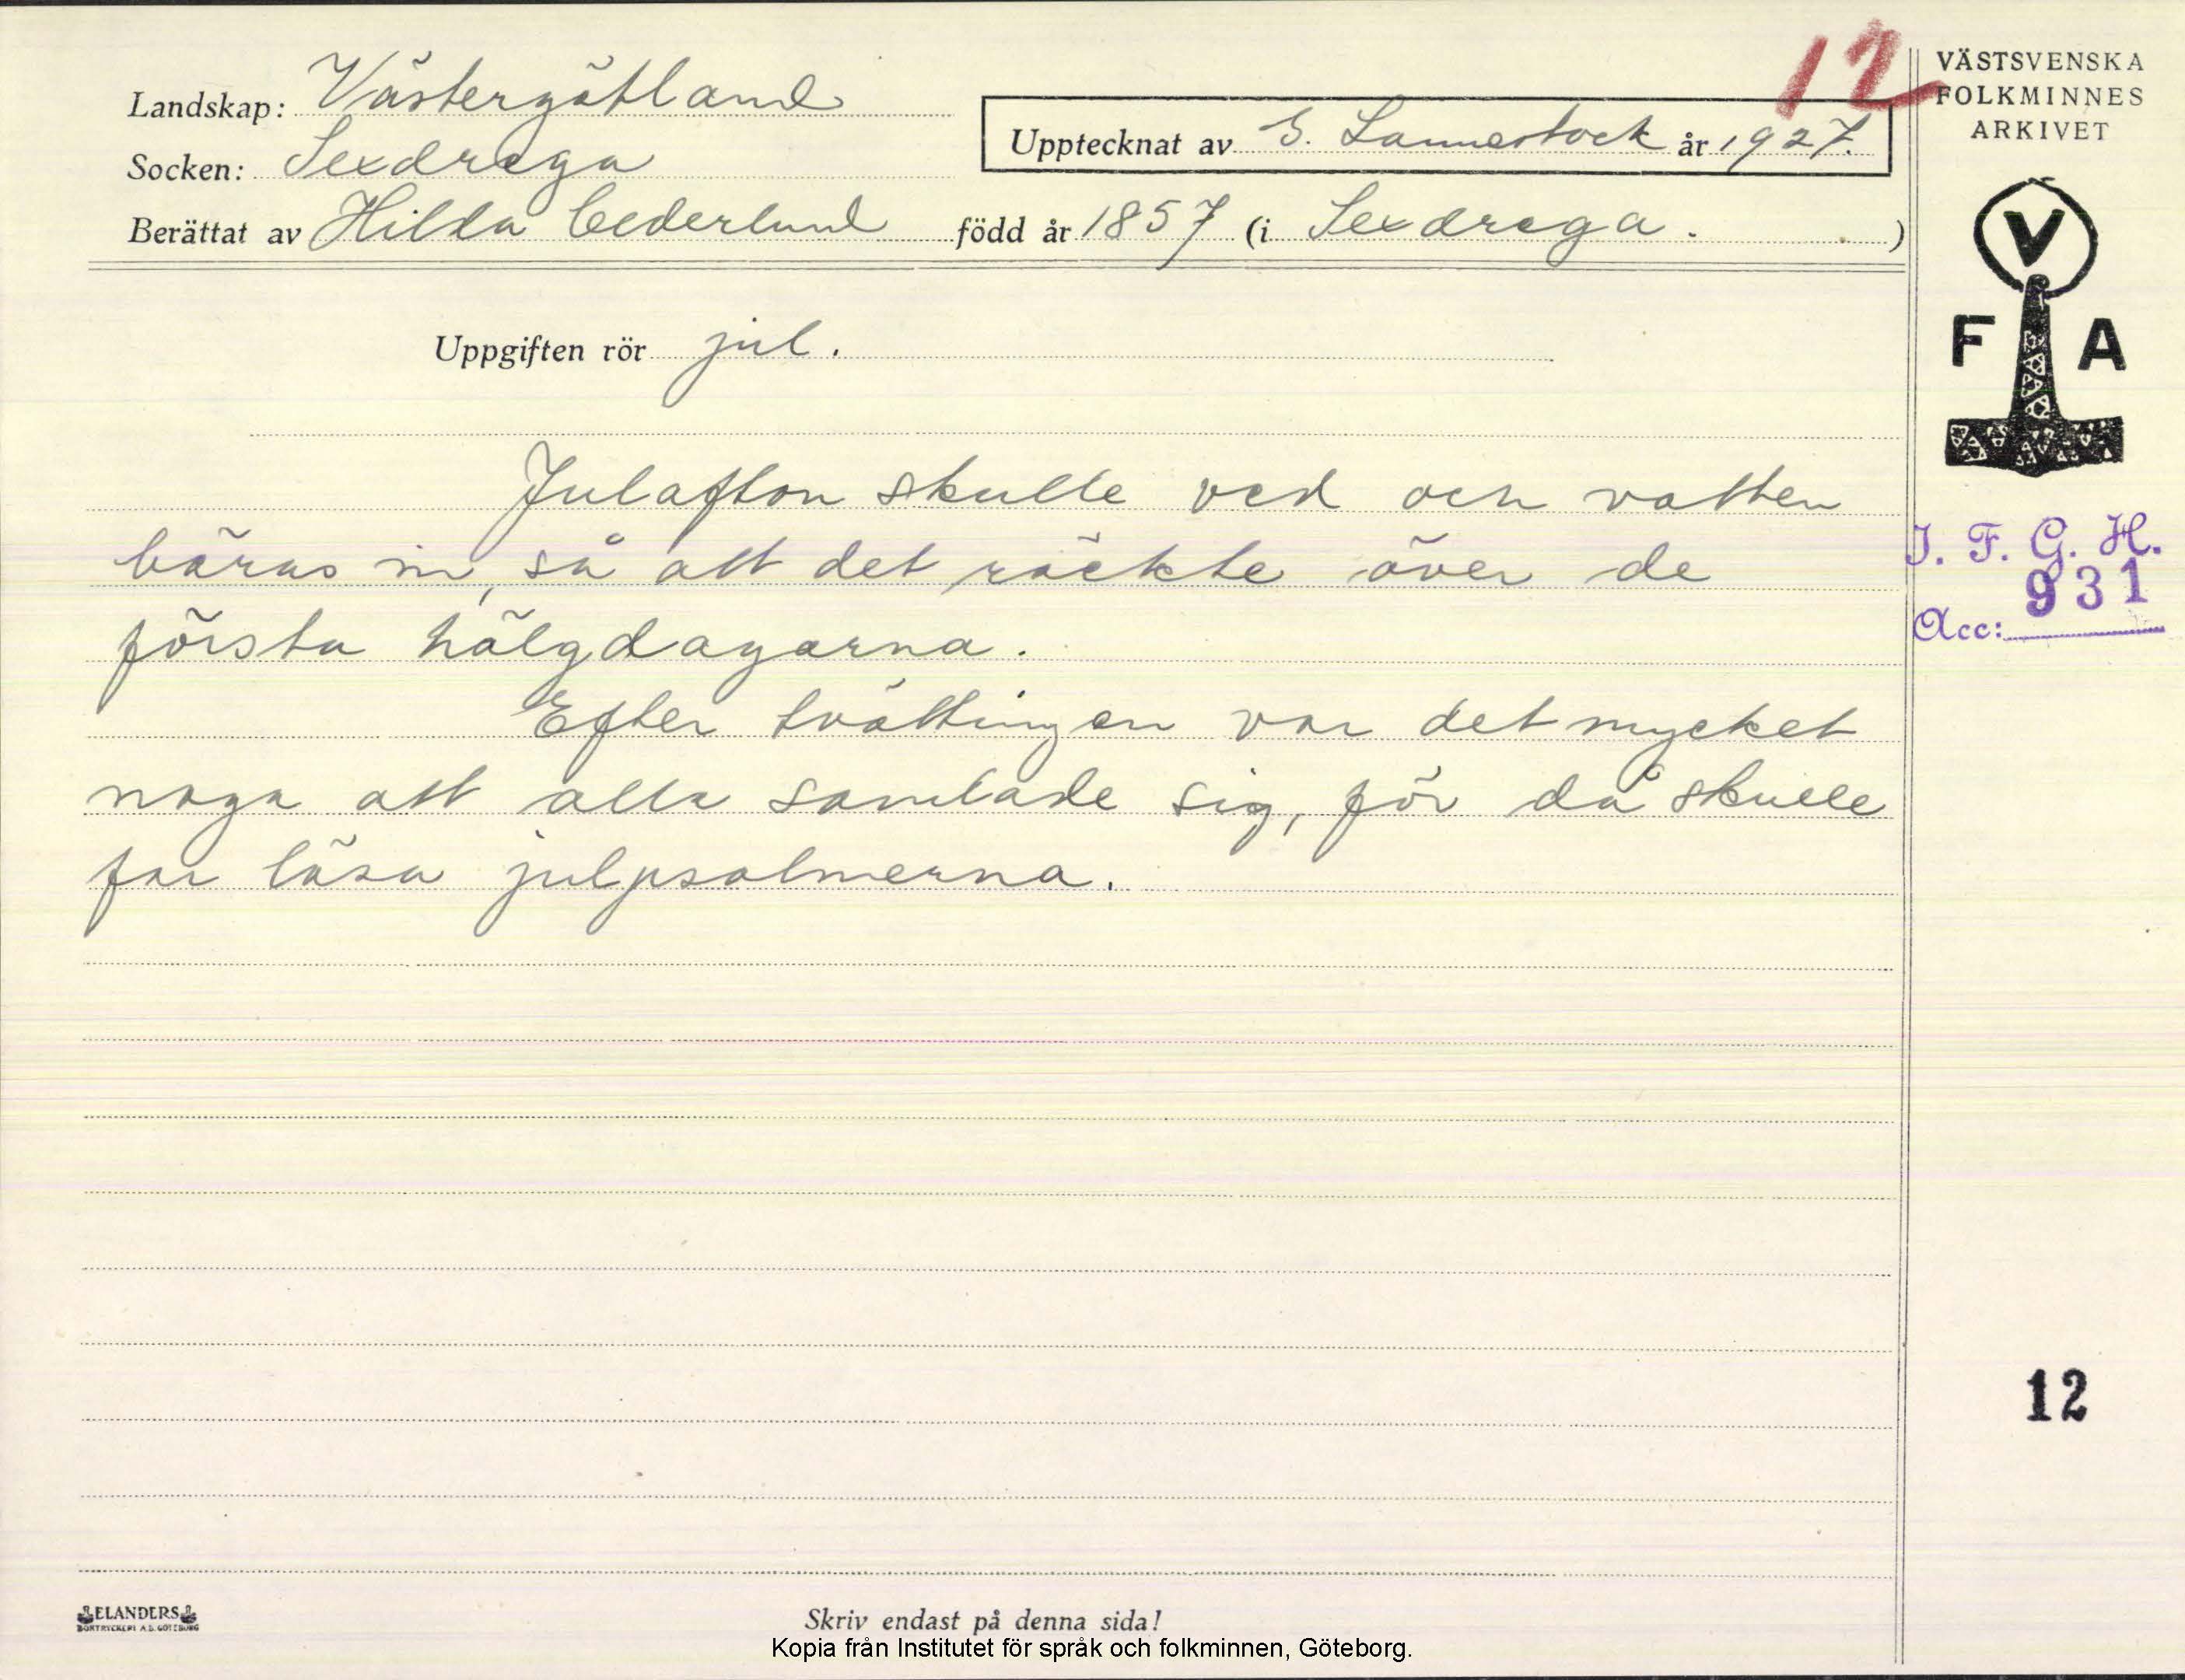 12
VÄSTSVENSKA
FOLKMINNES
ARKIVET
Landskap: Västergötland
Upptecknat av G. Lannestock år 1927.
Socken: Sexdrega
Berättat av Hilda Cederlund född år 1857 (i Sexdrega. )
V
F A
Uppgiften rör jul.
Julafton skulle ved och vatten
bäras in, så att det räckte över de
första hälgdagarna.
Efter tvättningen var det mycket
noga att alla samlade sig, för då skulle
far läsa julpsalmerna.
I. F. G. H.
931
Acc:
12
ELANDERS
BOKTRYCKERI A.B. GÖTEBORG
Skriv endast på denna sida!
Kopia från Institutet för språk och folkminnen, Göteborg.